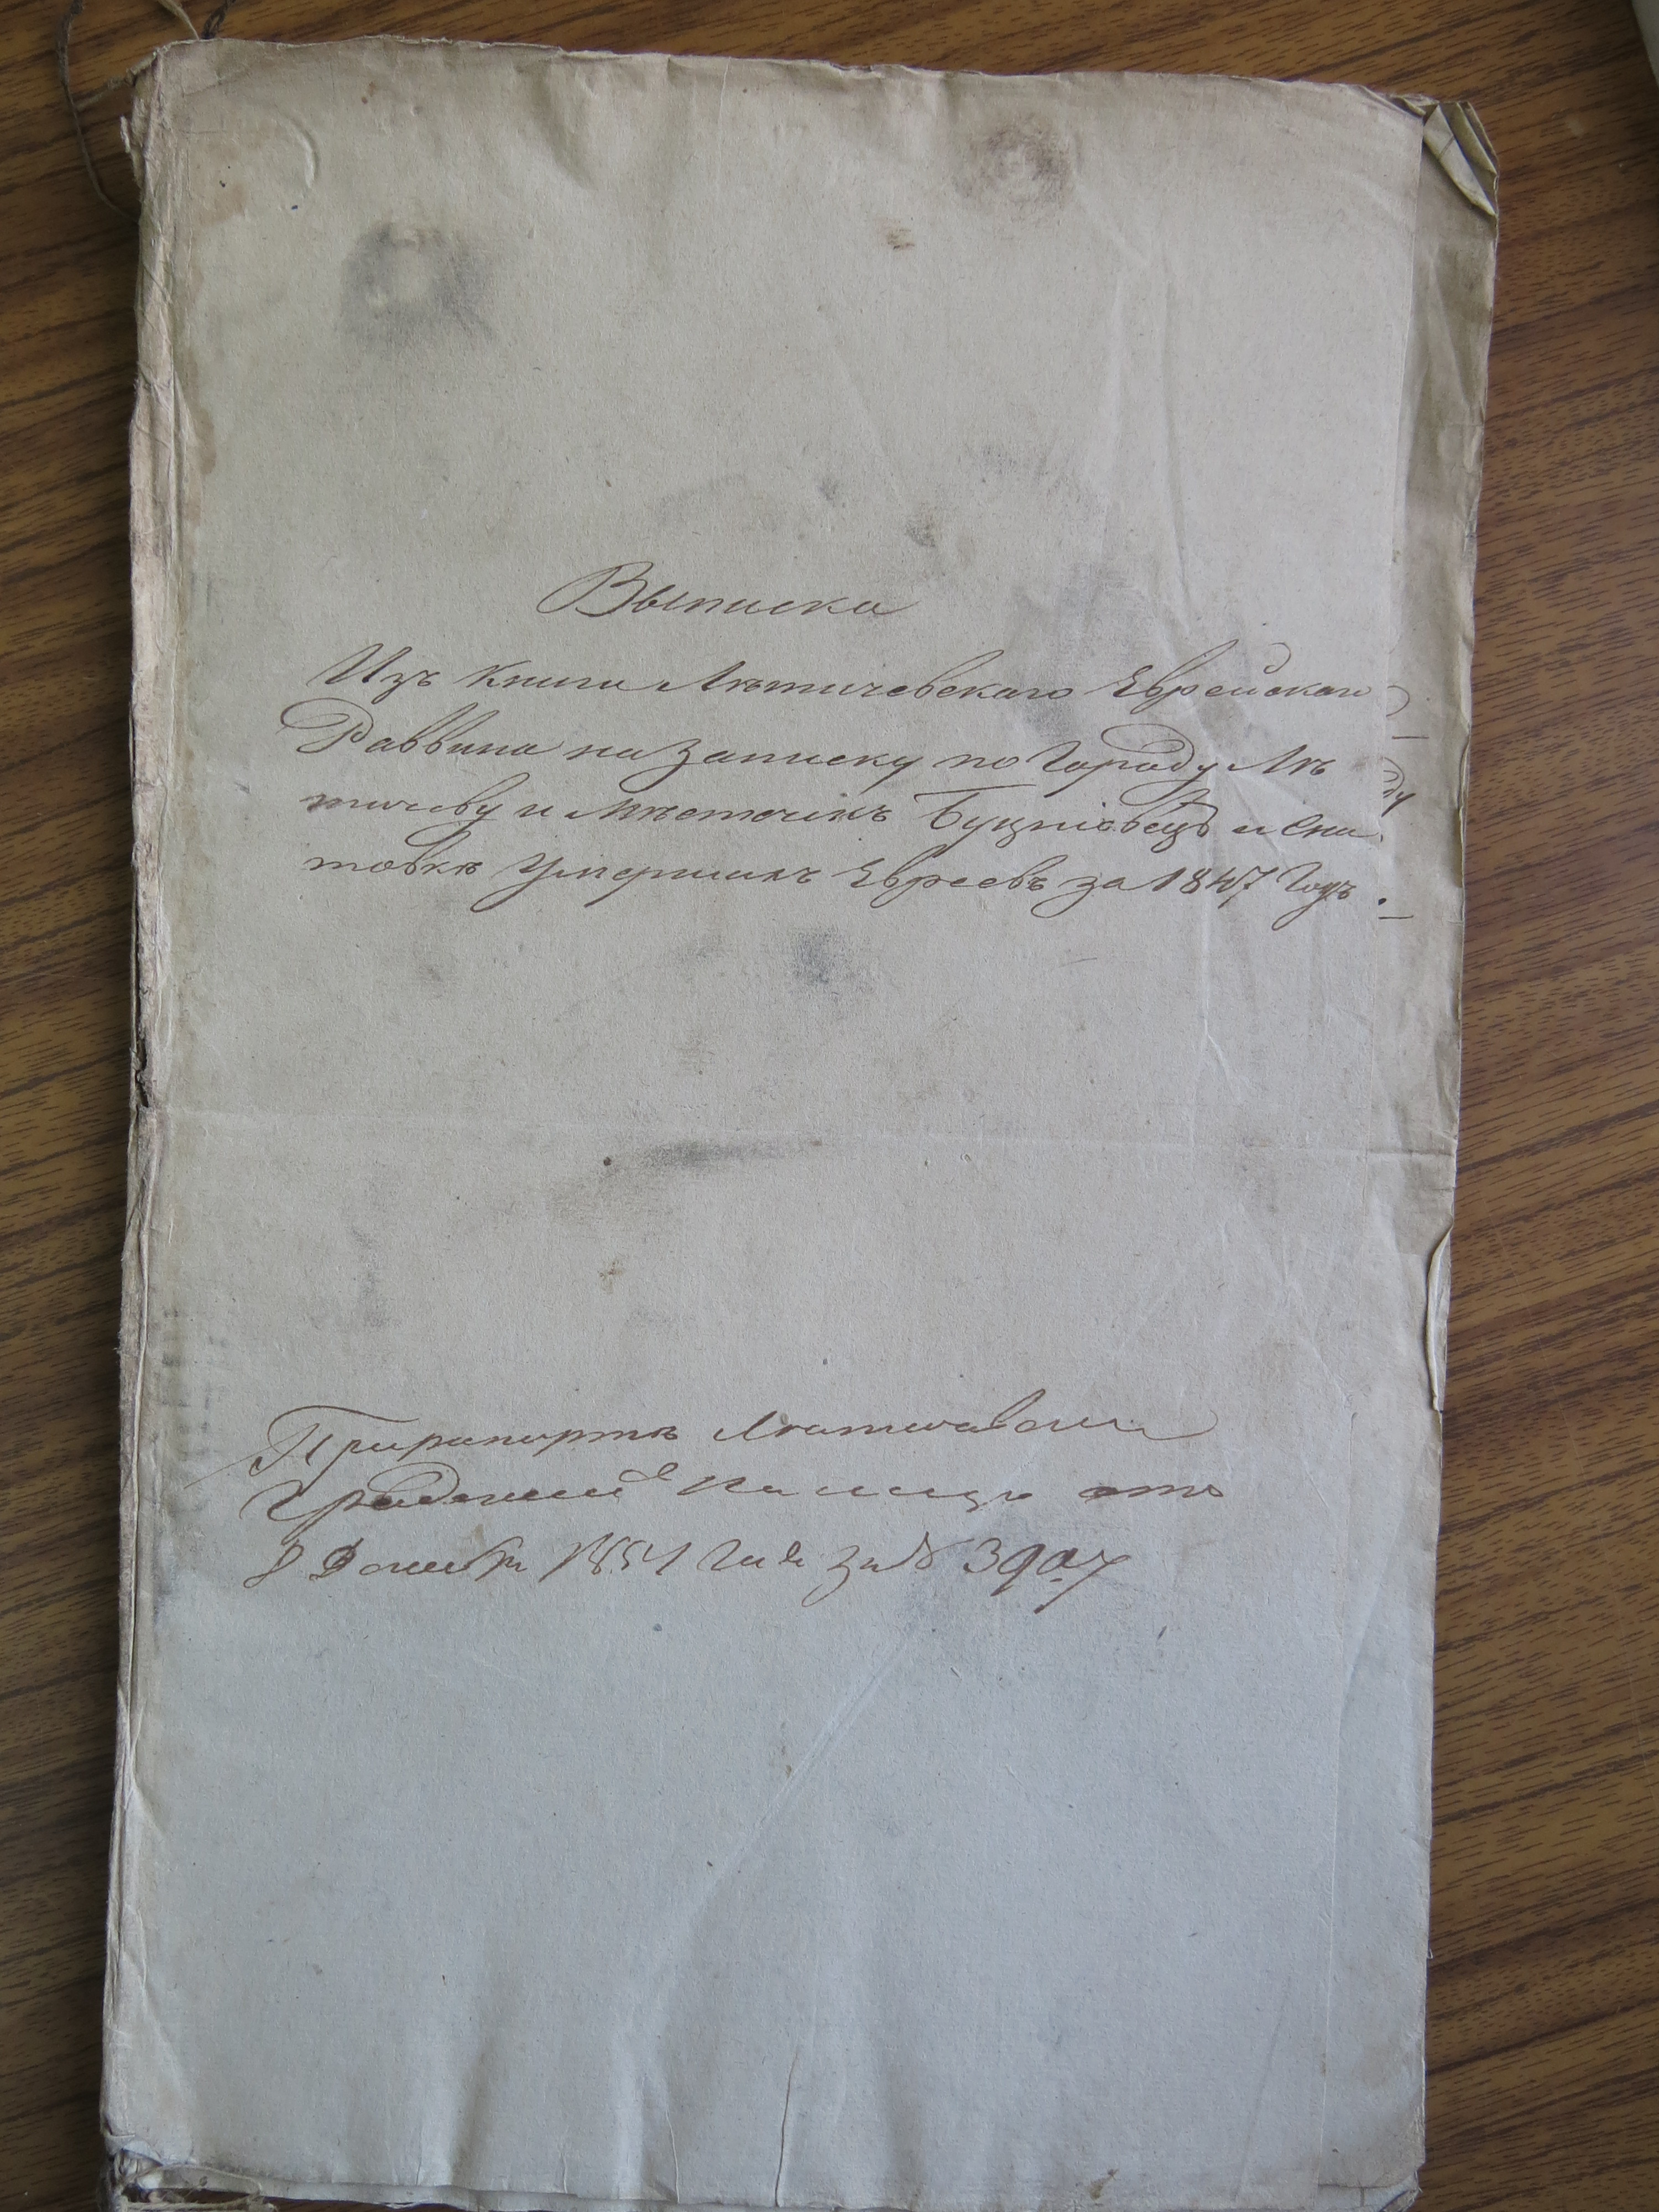 Выписка
Изъ Книги Лѣтичевскаго Еврейскаго
Раввина на записку по Городу Лѣ
тичеву и мѣстечкѣ Буцніовецъ и Сни
товкѣ Умершихъ Евреевъ за 1847 Годъ.
При рапортѣ Летичевской
Градской Полиціи отъ
8 Декабря 1854 Года за № 3907